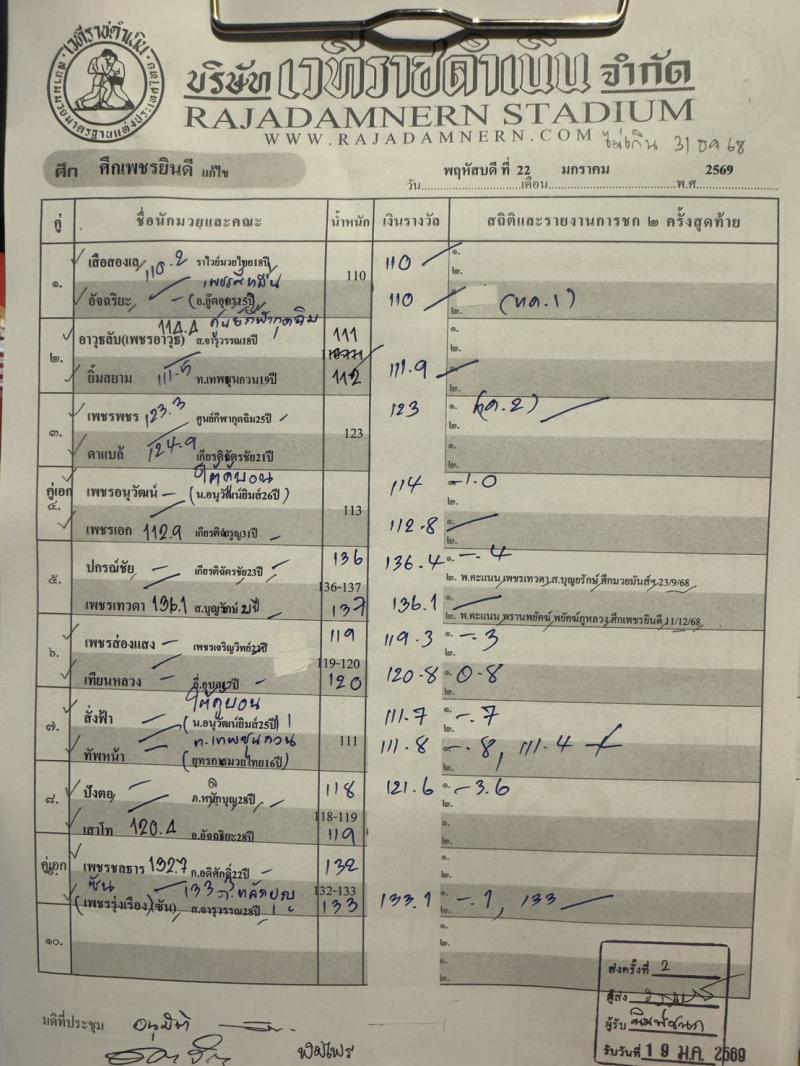 เวทีราชดำเนิน
บริษัท เวทีราชดำเนิน จำกัด
RAJADAMNERN STADIUM
WWW.RAJADAMNERN.COM
31 ธค 68
ศึก ศึกเพชรยินดี แก้ไข
พฤหัสบดี ที่ 22 มกราคม 2569
วัน เดือน พ.ศ.
คู่ ชื่อนักมวยและคณะ น้ำหนัก เงินรางวัล สถิติและรายงานการชก ๒ ครั้งสุดท้าย
๑. เสือสองเล 110.2 ราไวย์มวยไทย18ปี 110 110 ๑.
๒.
อัจฉริยะ 110 ๒. (ทด.1)
๒. อาวุธลับ(เพชรอาวุธ) ส.จารุวรรณ18ปี 111 ๑.
๒.
ยิ้มสยาม 111.5 ท.เทพชุนกวน19ปี 112 111.9 ๑.
๒.
๓. เพชรพชร 123.3 ศูนย์กีฬากุดฉิม25ปี 123 123 ๑. (ด.2)
๒.
ดาแบล้ 124.9 เกียรติฉัตรชัย21ปี ๑.
๒.
คู่เอก ใต้ดับอน
๔. เพชรอนุวัฒน์ (น.อนุวัฒน์ยิมส์26ปี) 113 114 ๑. -1.0
๒.
เพชรเอก 112.9 112.8 ๑.
๒.
๕. ปกรณ์ชัย เกียรติฉัตรชัย23ปี 136 136.4 ๑. -.4
136-137 ๒. พ.คะแนน เพชรเทวดา ส.บุญยรักษ์ ศึกมวยมันส์ฯ 23/9/68
เพชรเทวดา 136.1 ส.บุญรักษ์ 137 136.1 ๑.
๒. พ.คะแนน พรานพยัคฆ์ พยัคฆ์ภูหลวง ศึกเพชรยินดี 11/12/68
๖. เพชรส่องแสง เพชรเจริญวิทย์ 119 119.3 ๑. -.3
119-120 ๒.
เทียนหลวง 120 120.8 ๑. 0.8
๒.
๗. สั่งฟ้า (น.อนุวัฒน์ยิมส์25ปี) 111 111.7 ๑. -.7
๒.
ท.เทพชุนกวน
ทัพหน้า 111.8 ๑. -.8, 111.4
๒.
๘. ปังตอ 118 121.6 ๑. -3.6
118-119 ๒.
เสาโท 120.4 อ.อัจฉริยะ28ปี 119 ๑.
๒.
คู่เอก เพชรชลธาร 132.7 ก.อดิศักดิ์22ปี 132 ๑.
132-133 ๒.
ซัน 133
(เพชรรุ่งเรือง)(ซัน) ส.จารุวรรณ28ปี 133 133.1 ๑. -.1, 133
๒.
๑๐. ๑.
๒.
๑.
๒.
ส่งครั้งที่ 2
ผู้ส่ง
ผู้รับ
รับวันที่ 19 ม.ค. 2569
มติที่ประชุม อนุมัติ